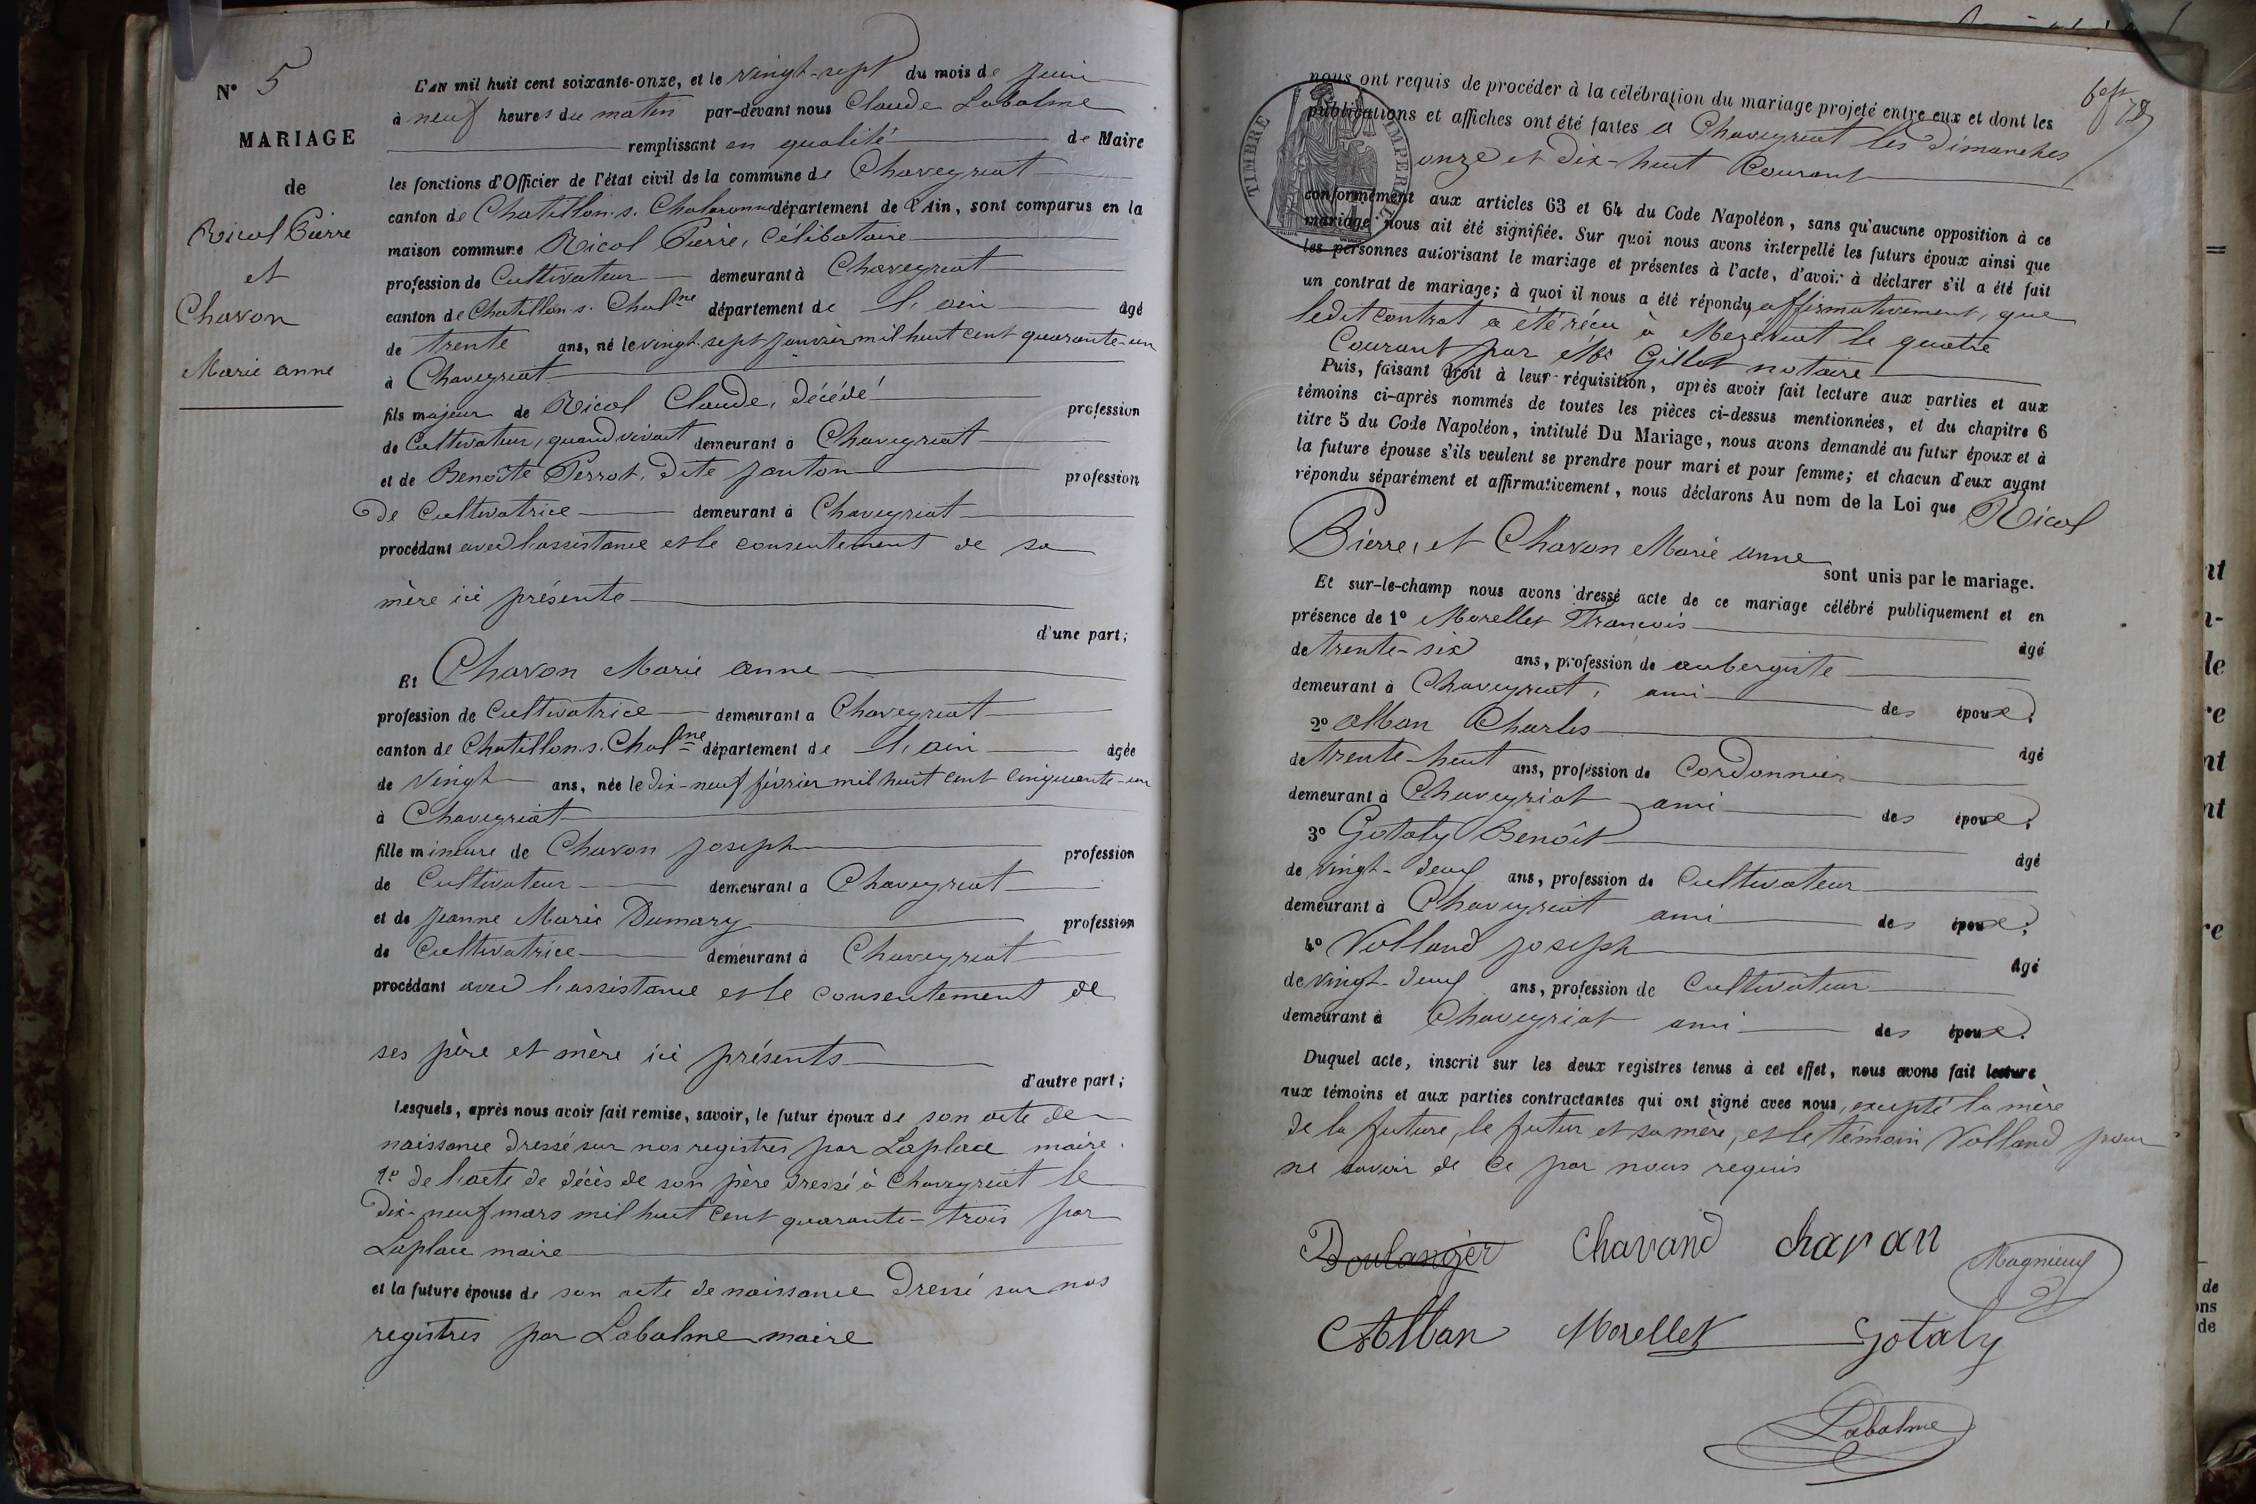 N° 5
MARIAGE
de
Nicol Pierre
et
Chavon
Marie anne
L'AN mil huit cent soixante-onze, et le vingt-sept du mois de juin
à neuf heures du matin par-devant nous Claude Labalme
remplissant en qualité de Maire
les fonctions d'Officier de l'état civil de la commune de Chaveyriat
canton de Chatillon-s.-Chalaronne département de l'Ain, sont comparus en la
maison commune Nicol Pierre, célibataire
profession de Cultivateur demeurant à Chaveyriat
canton de Chatillon-s. Chalne département de l'ain âgé
de trente ans, né le vingt-sept janvier mil huit cent quarante-un
à Chaveyriat
fils majeur de Nicol Claude, décédé profession
de Cultivateur, quand vivait demeurant à Chaveyriat
et de Benoîte Perrot, dite janton profession
de Cultivatrice demeurant à Chaveyriat
procédant avec l'assistance et le consentement de sa
mère ici présente
d'une part;
Et Chavon Marie anne
profession de Cultivatrice demeurant à Chaveyriat
canton de Chatillon-s. Chalne département de l'ain âgée
de vingt ans, née le dix-neuf février mil huit cent cinquante-un
à Chaveyriat
fille mineure de Chavon joseph profession
de Cultivateur demeurant à Chaveyriat
et de jeanne Marie Dumary profession
de Cultivatrice demeurant à Chaveyriat
procédant avec l'assistance et le consentement de
ses père et mère ici présents
d'autre part;
Lesquels, après nous avoir fait remise, savoir, le futur époux de son acte de
naissance dressé sur nos registres par Laplace maire.
1° de l'acte de décès de son père dressé à Chaveyriat le
dix-neuf mars mil huit cent quarante-trois par
Laplace maire
et la future épouse de son acte de naissance dressé sur nos
registres par Labalme maire
nous ont requis de procéder à la célébration du mariage projeté entre eux et dont les
publications et affiches ont été faites a Chaveyriat les dimanches
onze et dix-huit Courant
conformément aux articles 63 et 64 du Code Napoléon, sans qu'aucune opposition à ce
mariage nous ait été signifiée. Sur quoi nous avons interpellé les futurs époux ainsi que
les personnes autorisant le mariage et présentes à l'acte, d'avoir à déclarer s'il a été fait
un contrat de mariage; à quoi il nous a été répondu affirmativement, que
ledit contrat a été récu à Mezeriat le quatre
Courant par Me Gillet notaire
Puis, faisant droit à leur réquisition, après avoir fait lecture aux parties et aux
témoins ci-après nommés de toutes les pièces ci-dessus mentionnées, et du chapitre 6
titre 5 du Code Napoléon, intitulé Du Mariage, nous avons demandé au futur époux et à
la future épouse s'ils veulent se prendre pour mari et pour femme; et chacun d'eux ayant
répondu séparément et affirmativement, nous déclarons Au nom de la Loi que Nicol
Pierre, et Chavon Marie anne
sont unis par le mariage.
Et sur-le-champ nous avons dressé acte de ce mariage célébré publiquement et en
présence de 1° Morellet François âgé
de trente-six ans, profession de aubergiste
demeurant à Chaveyriat, ami des époux;
2° Alban Charles âgé
de trente-huit ans, profession de Cordonnier
demeurant à Chaveyriat ami des époux;
3° Gotaly Benoît âgé
de vingt-deux ans, profession de Cultivateur
demeurant à Chaveyriat ami des époux;
4° Volland joseph âgé
de vingt-deux ans, profession de Cultivateur
demeurant à Chaveyriat ami des époux.
Duquel acte, inscrit sur les deux registres tenus à cet effet, nous avons fait lecture
aux témoins et aux parties contractantes qui ont signé avec nous, excepté la mère
de la future, le futur et sa mère, et le témoin Volland pour
ne savoir de ce par nous requis
Boulanger Chavand chavan Magnieux
Alban Morellet Gotaly
Labalme
TIMBRE IMPERIAL